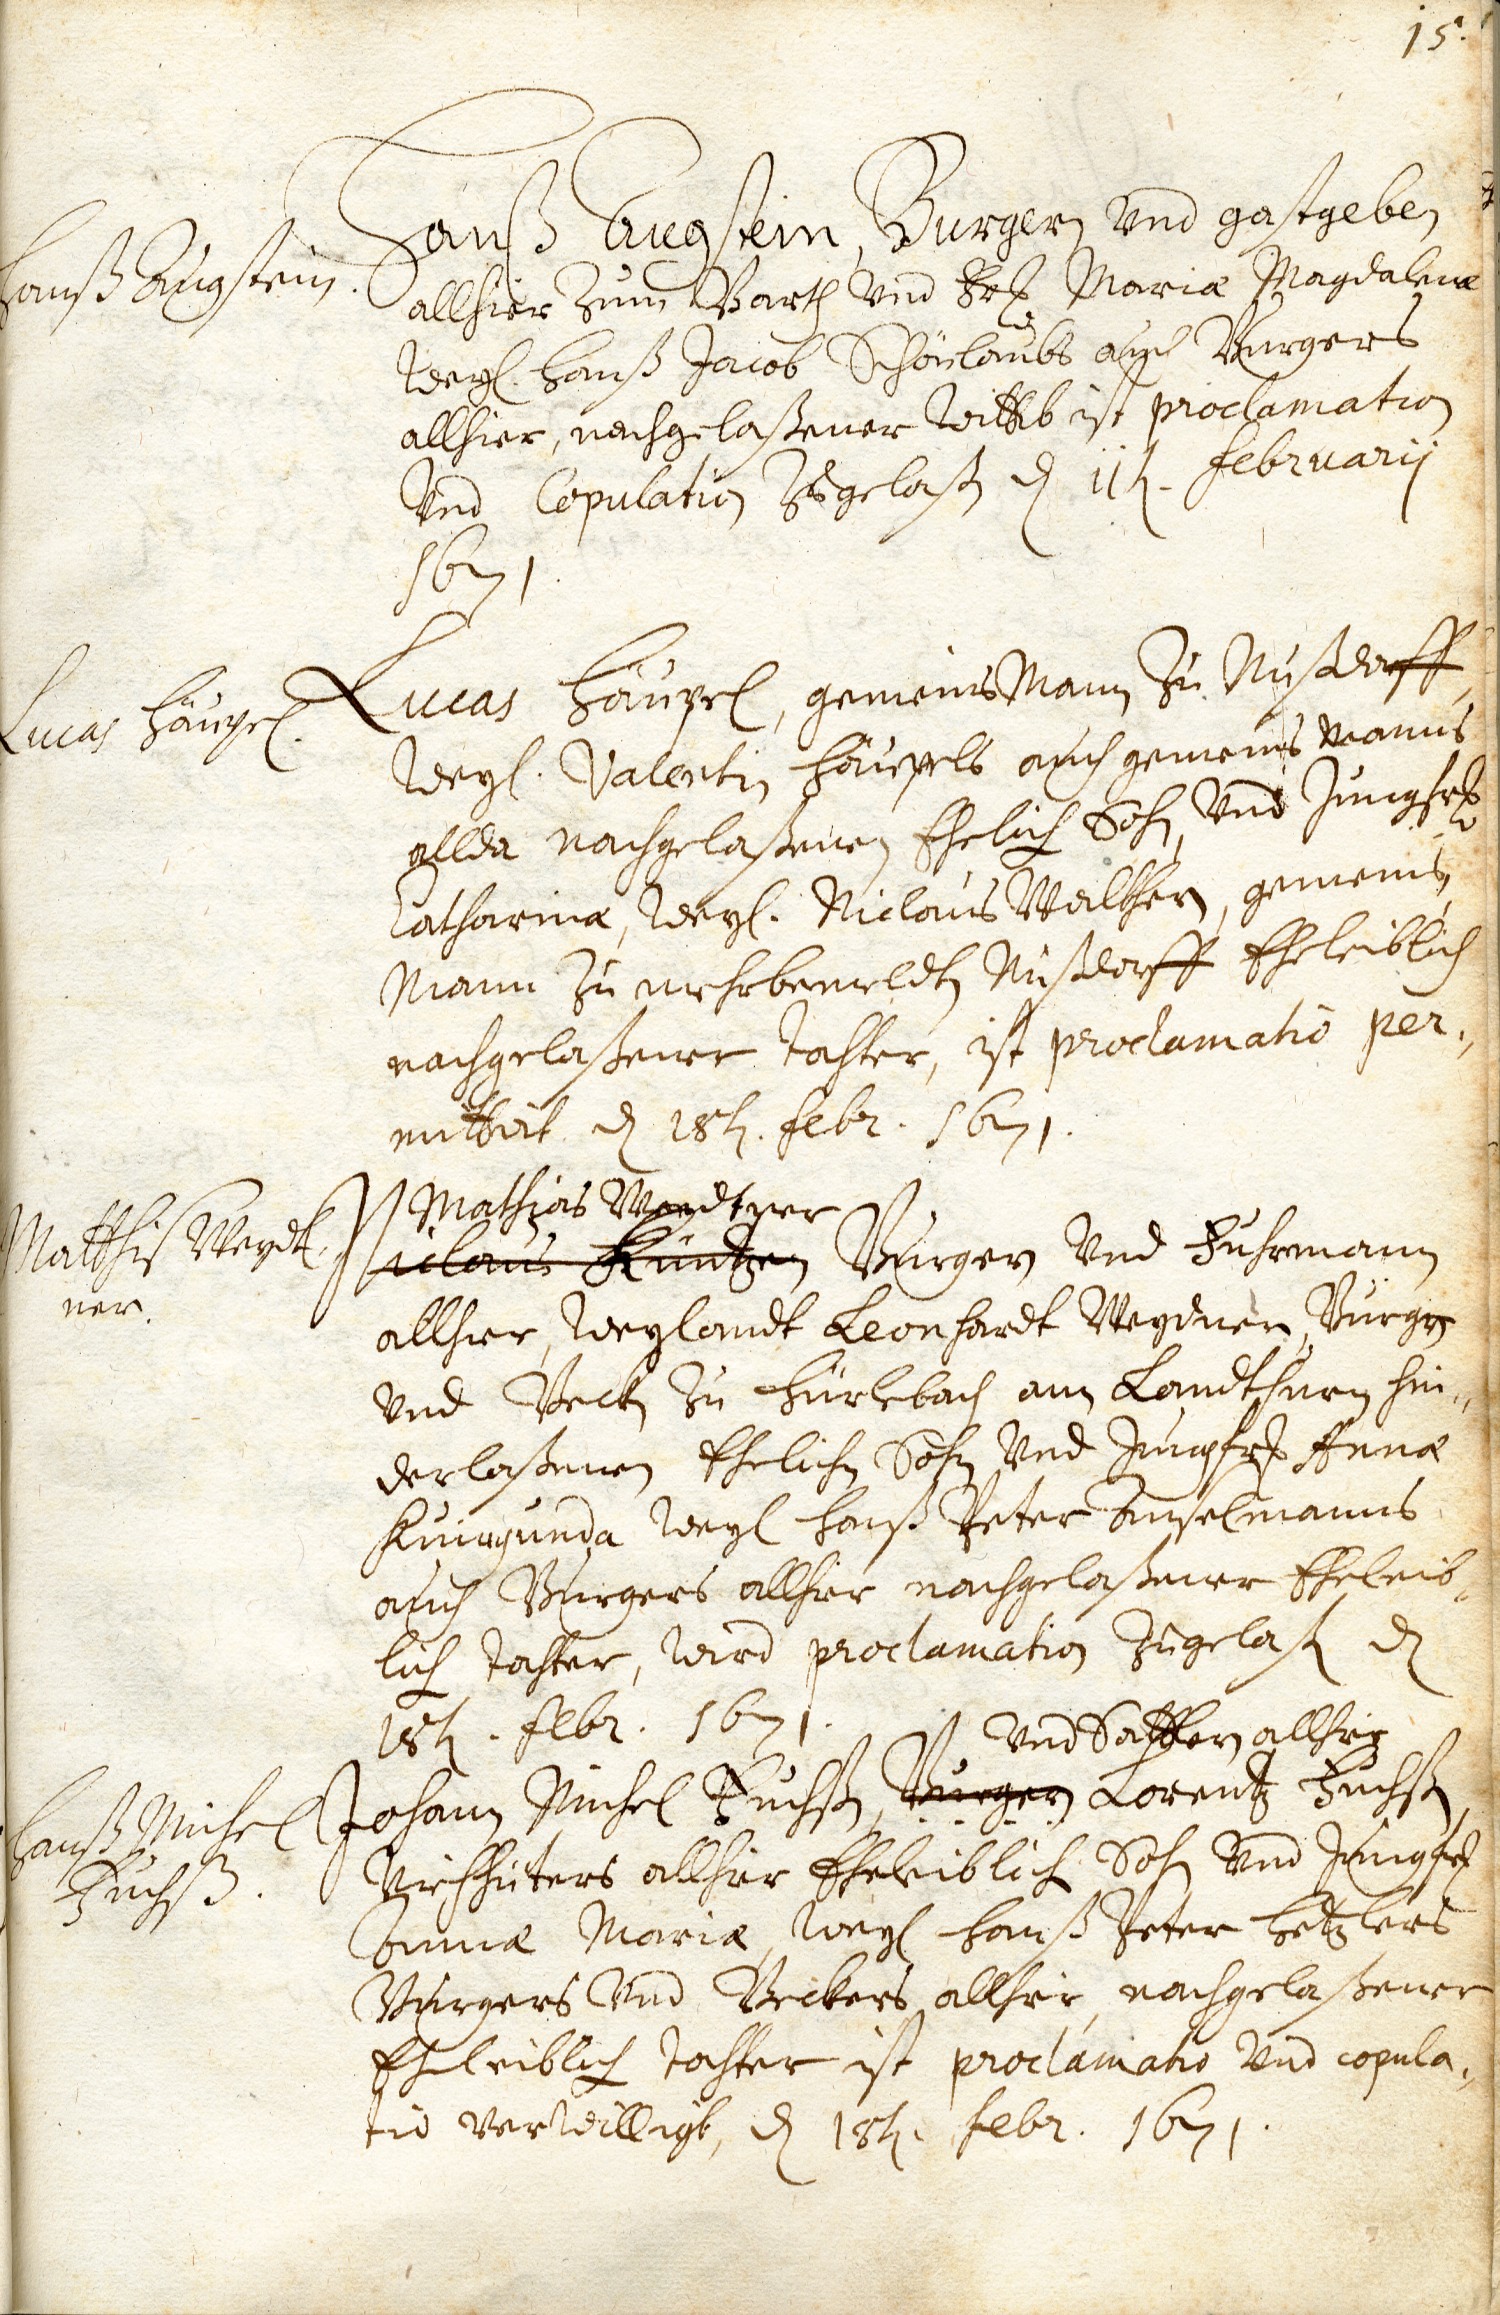 15.
Hanß Augstein.
Hanß Augstein, Burgern Vnd gastgeben
allhier zum Barth Vnd Fr. Mariæ Magdalenæ
Weyl. Hanß Jacob Schönlaubs auch Burgers
allhier, nachgelaßener Wittib ist proclamation
Vnd Copulation Zugelaßen d 11t. Februarij
1671.
Lucas Häupel.
Lucas Häupel, gemeinsMann Zu Nußdorff,
Weyl. Valentin Häupels auch gemeins manns
allda nachgelaßenen Ehelich Sohn, Vnd Jungfr.
Catharinæ, Weyl. Niclaus Walthern, gemeins
Mann Zu mehrbemeldten Nußdorff Eheleiblich
nachgelaßener tochter, ist proclamatio per,,
mittirt d 18t. Febr. 1671.
Matthis Weydt,,
ner.
Mathias Weydtner
Niclaus Küntzen Burgern Vnd Fuhrmann
allhier, Weylandt Leonhardt Weydner, Burgern
Vnd Becken Zu Hürlebach am Landthurn hin,,
derlaßenen Ehelichen Sohn Vnd Jungfr. Annæ
Kunigunda Weyl Hanß Peter Anselmanns
auch Burgers allhier nachgelaßener Eheleib,,
lich tochter, Wird proclamation Zugelaßen d
18t. Febr. 1671.
Vnd Sattlern allhier
Hanß Michel
Fuchß.
Johann Michel Fuchßen, Burgern Lorentz Fuchßen,
Viehhüters allhier Eheleiblich Sohn Vnd Jungfr
Annæ Mariæ, Weyl Hanß Peter Hetzlers
Burgers Vnd Beckers allhier, nachgelaßener
Eheleiblich tochter ist proclamatio Vnd copula,,
tio verwilligt, d 18t. Febr. 1671.